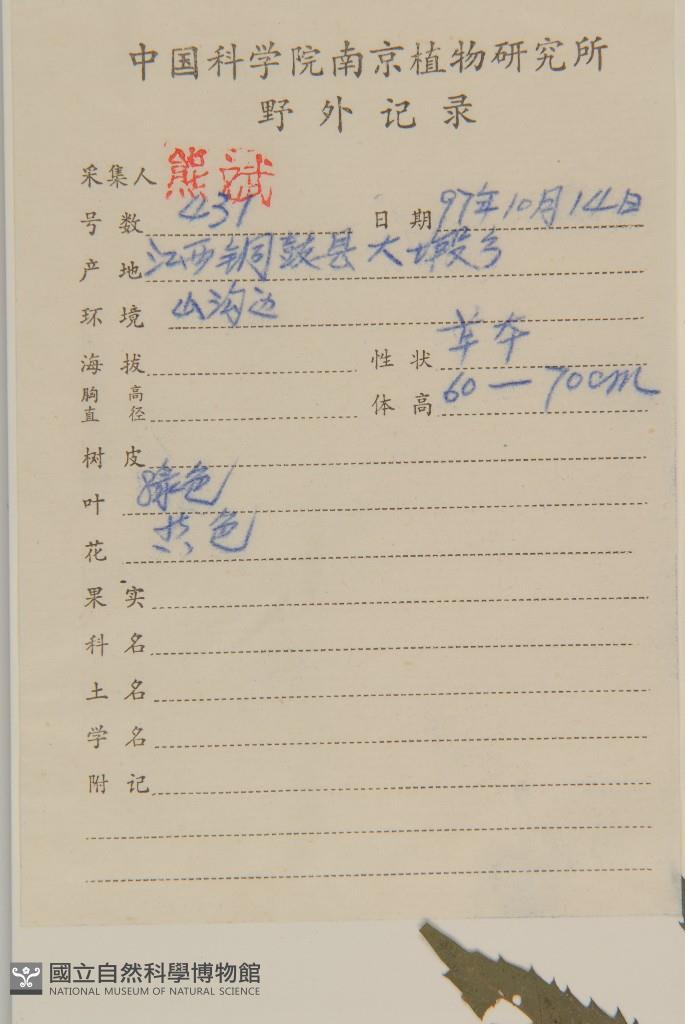 中国科学院南京植物研究所
野外记录
采集人 熊斌
号数 431 日期 97年10月14日
产地 江西铜鼓县大塅乡
环境 山沟边
海拔 性状 草本
胸高直径 体高 60—70cm
树皮
叶 绿色
花 黄色
果实
科名
土名
学名
附记
國立自然科學博物館
NATIONAL MUSEUM OF NATURAL SCIENCE